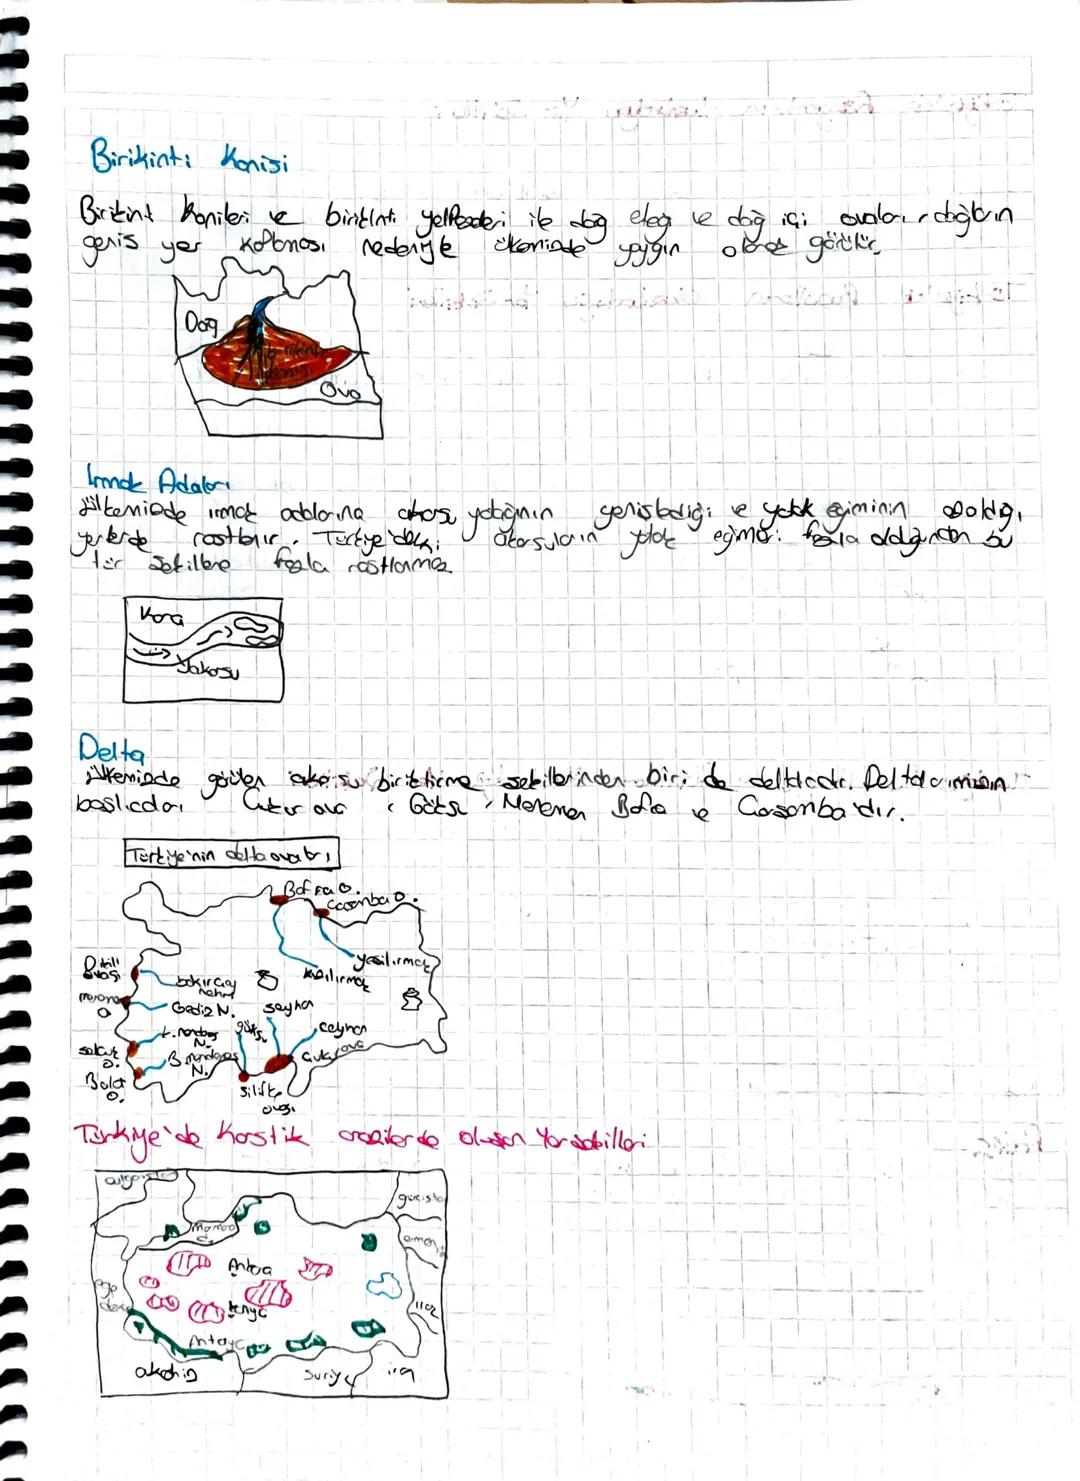 Birikinti Konisi
Birikint Konileri ve birikinti yelpazeleri ile dağ eteği ve dağ içi ovaları, dağların
geniş yer kaplaması nedeniyle ülkemizde yaygın olarak görülür.
Dağ
birikinti
konisi
Ova
Irmak Adaları
Ülkemizde ırmak adalarına akarsu yatağının genişlediği ve yatak eğiminin azaldığı
yerlerde rastlanır. Türkiye'deki akarsuların yatak eğimi fazla olduğundan bu
tür şekillere fazla rastlanmaz
Kara
Yakasu
Delta
Ülkemizde görülen akarsu biriktirme şekillerinden biri de deltadır. Deltalarımızın
başlıcaları Çukur ova, Göksu, Menemen Bafra ve Çarşamba'dır.
Türkiye'nin delta ovaları
Bafra O.
Çarşamba O.
Dikili
ovası
yeşilırmak
kızılırmak
bakırçay
nehri
Gediz N.
seyhan
göksu
ceyhan
k. menderes
N.
selçuk
O.
B. menderes
N.
Çukurova
Balat
O.
Silifke
ovası
Türkiye'de Karstik arazilerde oluşan Yer şekilleri
gürcista
ermen
Ankara
ege
deniz
konya
ırak
Antalya
akdeniz
Suriye